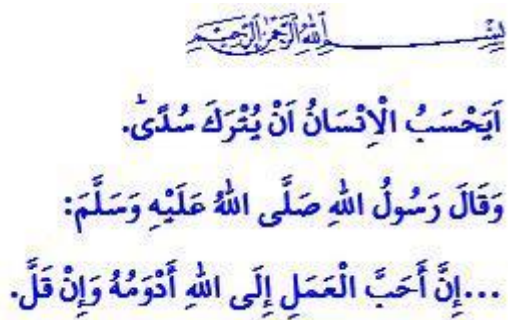 بِسْمِ اللهِ الرَّحْمٰنِ الرَّحِيمِ
اَيَحْسَبُ الْاِنْسَانُ اَنْ يُتْرَكَ سُدًىۜ.
وَقَالَ رَسُولُ اللهِ صَلَّى اللهُ عَلَيْهِ وَسَلَّمَ:
...إِنَّ أَحَبَّ الْعَمَلِ إِلَى اللهِ أَدْوَمُهُ وَإِنْ قَلَّ.